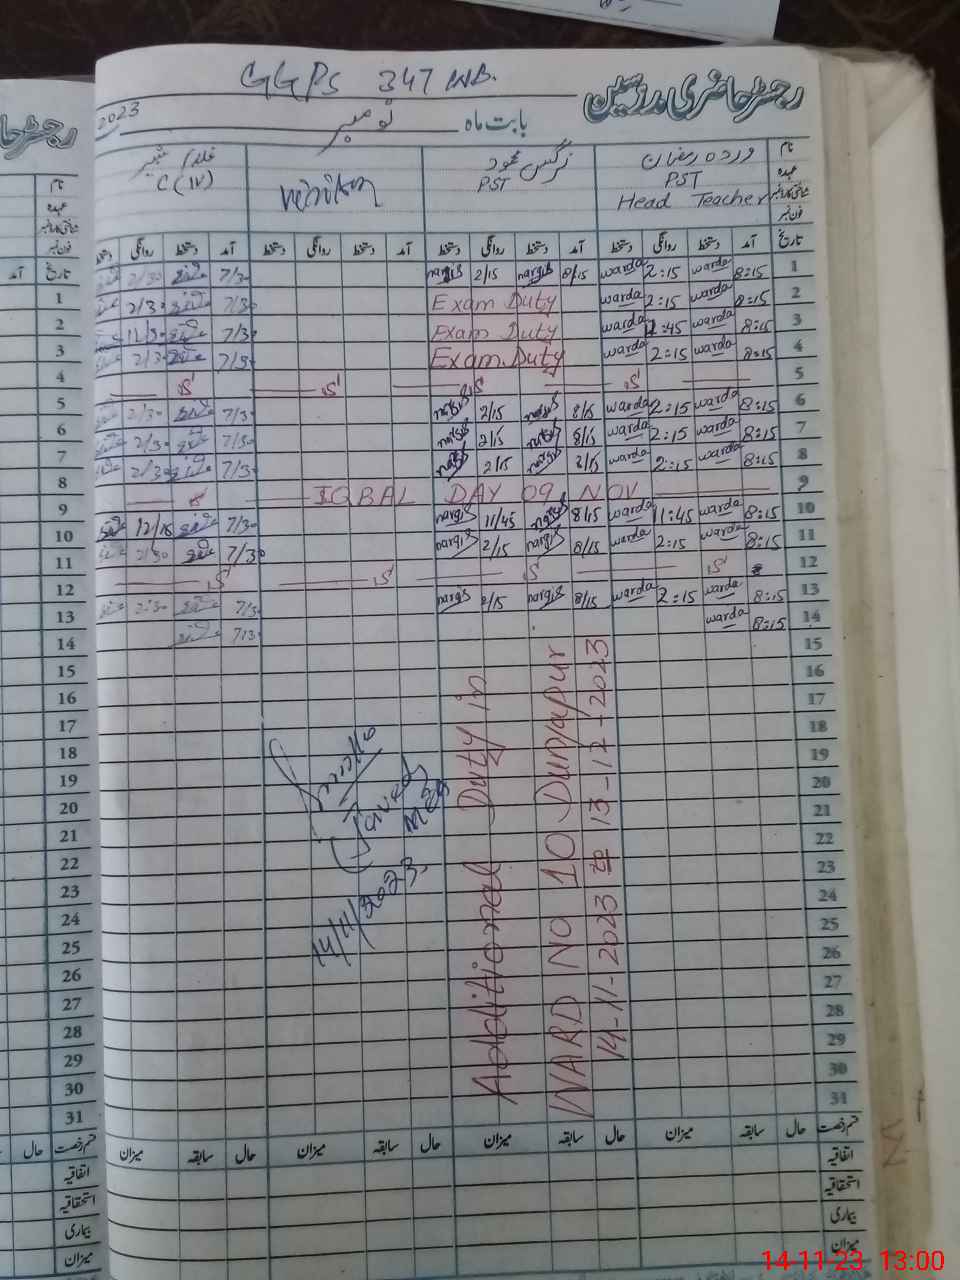 GGPS 347 WB.
رجسٹر حاضری مدرسین
بابت ماہ نومبر 2023
نام وردہ رمضان نرگس محمود
عہدہ PST PST C(IV)
Head Teacher
فون نمبر
تاریخ آمد دستخط روانگی دستخط آمد دستخط روانگی دستخط آمد دستخط روانگی دستخط آمد دستخط روانگی دستخط
1 8:15 warda 2:15 warda 8/15 nargis 2/15 nargis 7/30 2/30
2 8:15 warda 2:15 warda Exam Duty 7/30 2/30
3 8:15 warda 45 warda Exam Duty 7/30
4 8:15 warda 2:15 warda Exam Duty 7/30 2/30
5 S S S S
6 8:15 warda 2:15 warda 8/15 nargis 2/15 nargis 7/30 2/30
7 8:15 warda 2:15 warda 8/15 nargis 2/15 nargis 7/30 2/30
8 8:15 warda 2:15 warda 8/15 nargis 2/15 nargis 7/30 2/30
9 IQBAL DAY 09 NOV
10 8:15 warda 11:45 warda 8/15 nargis 11/45 nargis 7/30 12/15
11 8:15 warda 2:15 warda 8/15 nargis 2/15 nargis 7/30 2/30
12 S S S S
13 8:15 warda 2:15 warda 8/15 nargis 2/15 nargis 7/30 2:30
14 8:15 warda 7/30
15
16
17
18
19
20
21
22
23
24
25
26
27
28
29
30
31
Additional Duty in
WARD NO 10 Dunyapur
14-11-2023 to 13-12-2023
14/11/2023
قسم رخصت حال سابقہ میزان حال سابقہ میزان حال سابقہ میزان حال سابقہ میزان
اتفاقیہ
استحقاقیہ
بیماری
میزان
رجسٹر حا
نام
عہدہ
فون نمبر
تاریخ آمد
1
2
3
4
5
6
7
8
9
10
11
12
13
14
15
16
17
18
19
20
21
22
23
24
25
26
27
28
29
30
31
قسم رخصت حال
اتفاقیہ
استحقاقیہ
بیماری
میزان
14-11-23 13:00